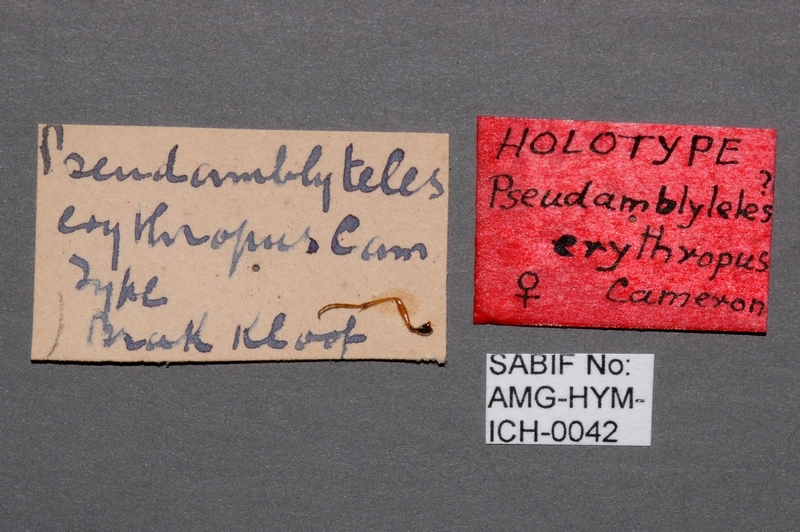 Pseudamblyteles
erythropus Cam
Type
Brak Kloof
HOLOTYPE
?
Pseudamblyteles
erythropus
♀ Cameron
SABIF No:
AMG-HYM-
ICH-0042